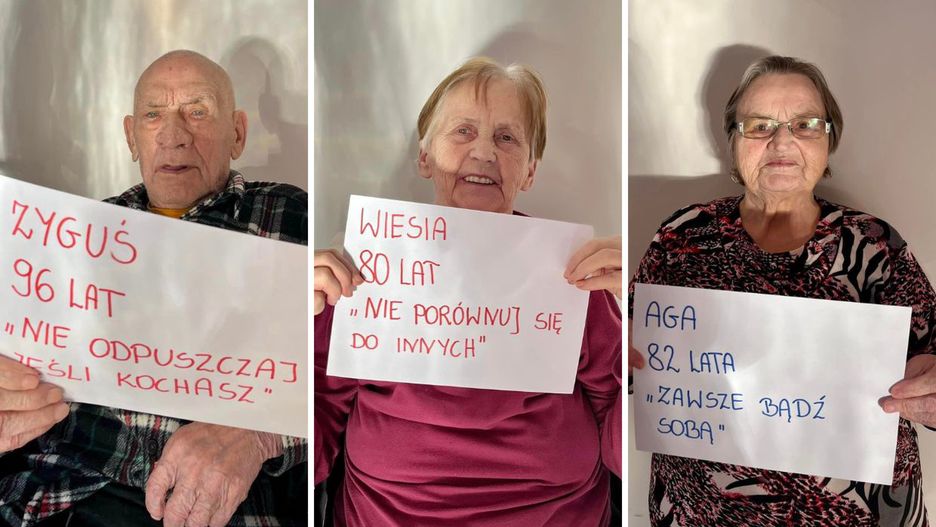 ZYGUŚ
96 LAT
„NIE ODPUSZCZAJ
JEŚLI KOCHASZ"
WIESIA
80 LAT
„NIE PORÓWNUJ SIĘ
DO INNYCH"
AGA
82 LATA
„ZAWSZE BĄDŹ
SOBĄ"